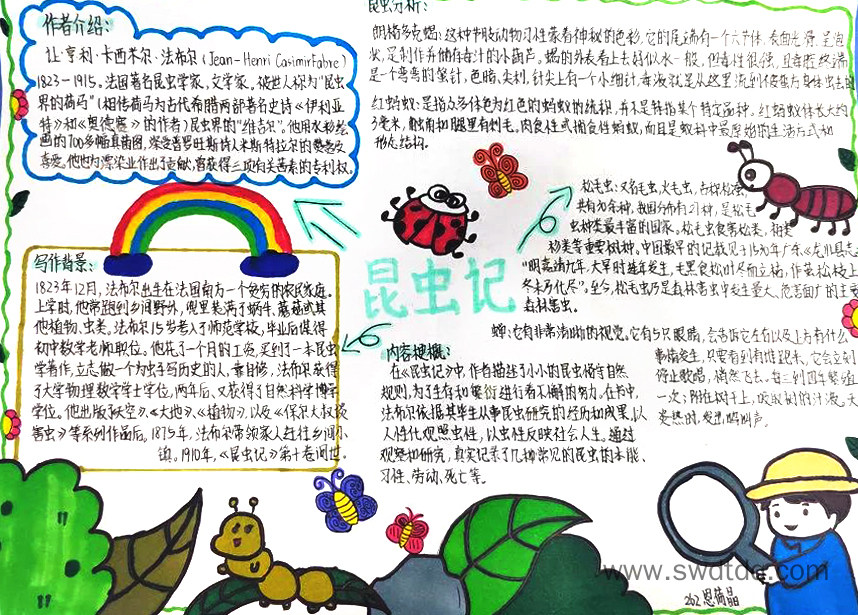 作者介绍：
让·亨利·卡西米尔·法布尔（Jean-Henri CasimirFabre）
1823-1915。法国著名昆虫学家，文学家。被世人称为“昆虫
界的荷马”（相传荷马为古代希腊两部著名史诗《伊利亚
特》和《奥德赛》的作者）昆虫界的“维吉尔”。他用水彩绘
画的700多幅真菌图，深受普罗旺斯诗人米斯特拉尔的赞誉及
喜爱。他也为漂染业作出了贡献，曾获得三项有关茜素的专利权。
写作背景：
1823年12月，法布尔出生在法国南方一个贫穷的农民家庭。
上学时，他常跑到乡间野外，兜里装满了蜗牛、蘑菇或其
他植物、虫类。法布尔15岁考入了师范学校，毕业后谋得
初中数学老师职位。他花了一个月的工资，买到了一本昆虫
学著作，立志做一个为虫子写历史的人，靠自修，法布尔获得
了大学物理数学学士学位，两年后，又获得了自然科学博学
学位。他出版《天空》、《大地》、《植物》，以及《保尔大叔谈
害虫》等系列作品后。1875年，法布尔带领家人赶往乡间小
镇。1910年，《昆虫记》第十卷问世。
昆虫分析：
朗格多克蝎：这种节肢动物习性蒙着神秘的色彩，它的尾端有一个六节体，表面光滑，呈泡
状，是制作并储存毒汁的小葫芦。蝎的外表看上去
是一个弯弯的蜇针，色暗，尖利，针尖上有一个小细针，毒液就是从这里流到
红蚂蚁：是指众多体色为红色的蚂蚁的统称，并不是特指某个特定品种。红蚂蚁体长大约
3毫米，触角和腿里有刺毛。肉食性或捕食性蚂蚁，而且是蚁科中最原始的生活方式和
形态结构。
松毛虫：又名毛虫，火毛虫，古称松蚕，
共有30余种，我国分布有 种，是松毛
虫种类最丰富的国家。松毛虫食害松类，柏类
杉类等重要树种。中国最早的记载见于1530年广东《龙川县志》
“明嘉靖九年，大旱时连年发生，毛黑食松叶尽而立枯，作茧松枝上
冬末乃化尽”。至今，松毛虫乃是森林害虫中发生量大，危害面广的主要
森林害虫。
蝉：它有非常清晰的视觉。它有5只眼睛，会告诉它左右以及上方有什么
事情发生，只要看到有谁跑来，它会立刻
停止歌唱，悄然飞去。每三到四年繁殖
一次；附在树干上，吸取树的汁液。天
炎热时，发出鸣叫声。
昆虫记
内容梗概：
在《昆虫记》中，作者描述了小小的昆虫恪守自然
规则，为了生存和繁衍进行着不懈的努力。在书中，
法布尔依据其毕生从事昆虫研究的经历和成果，以
人性化观照虫性，以虫性反映社会人生。通过
观察和研究，真实记录了几种常见的昆虫的本能、
习性、劳动、死亡等。
www.swdtdc.com
202 恩荷晶